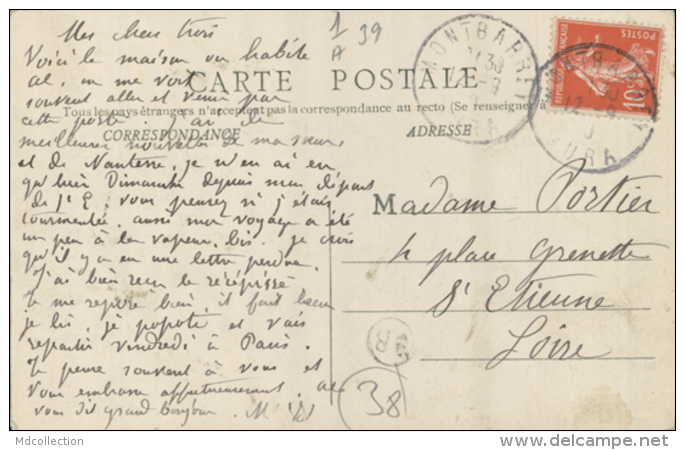 Mes chers trois
Voici la maison où habite
al, on me voit
souvent aller et venir par
cette porte. J'ai de
meilleures nouvelles de ma sœur
et de Nanterre, je n'en ai eu
qu'hier Dimanche depuis mon départ
de St E, vous pensez si j'étais
tourmentée, aussi mon voyage a été
un peu à la vapeur, bis. je crois
qu'il y a eu une lettre perdue.
J'ai bien reçu le récépissé
Je me repose bien, il fait beau
je lis, je popote et vais
repartir vendredi à Paris.
Je pense souvent à vous et
vous embrasse affectueusement,
vous dit grand bonjour. M
1/A 39
CARTE POSTALE
Tous les pays étrangers n'acceptent pas la correspondance au recto (Se renseigner à
CORRESPONDANCE
ADRESSE
MONTBARREY
JURA
MONTBARREY
JURA
REPUBLIQUE FRANÇAISE
POSTES
10
Madame Portier
4 place Grenette
St Etienne
Loire
B
38
Mdcollection
www.delcampe.net